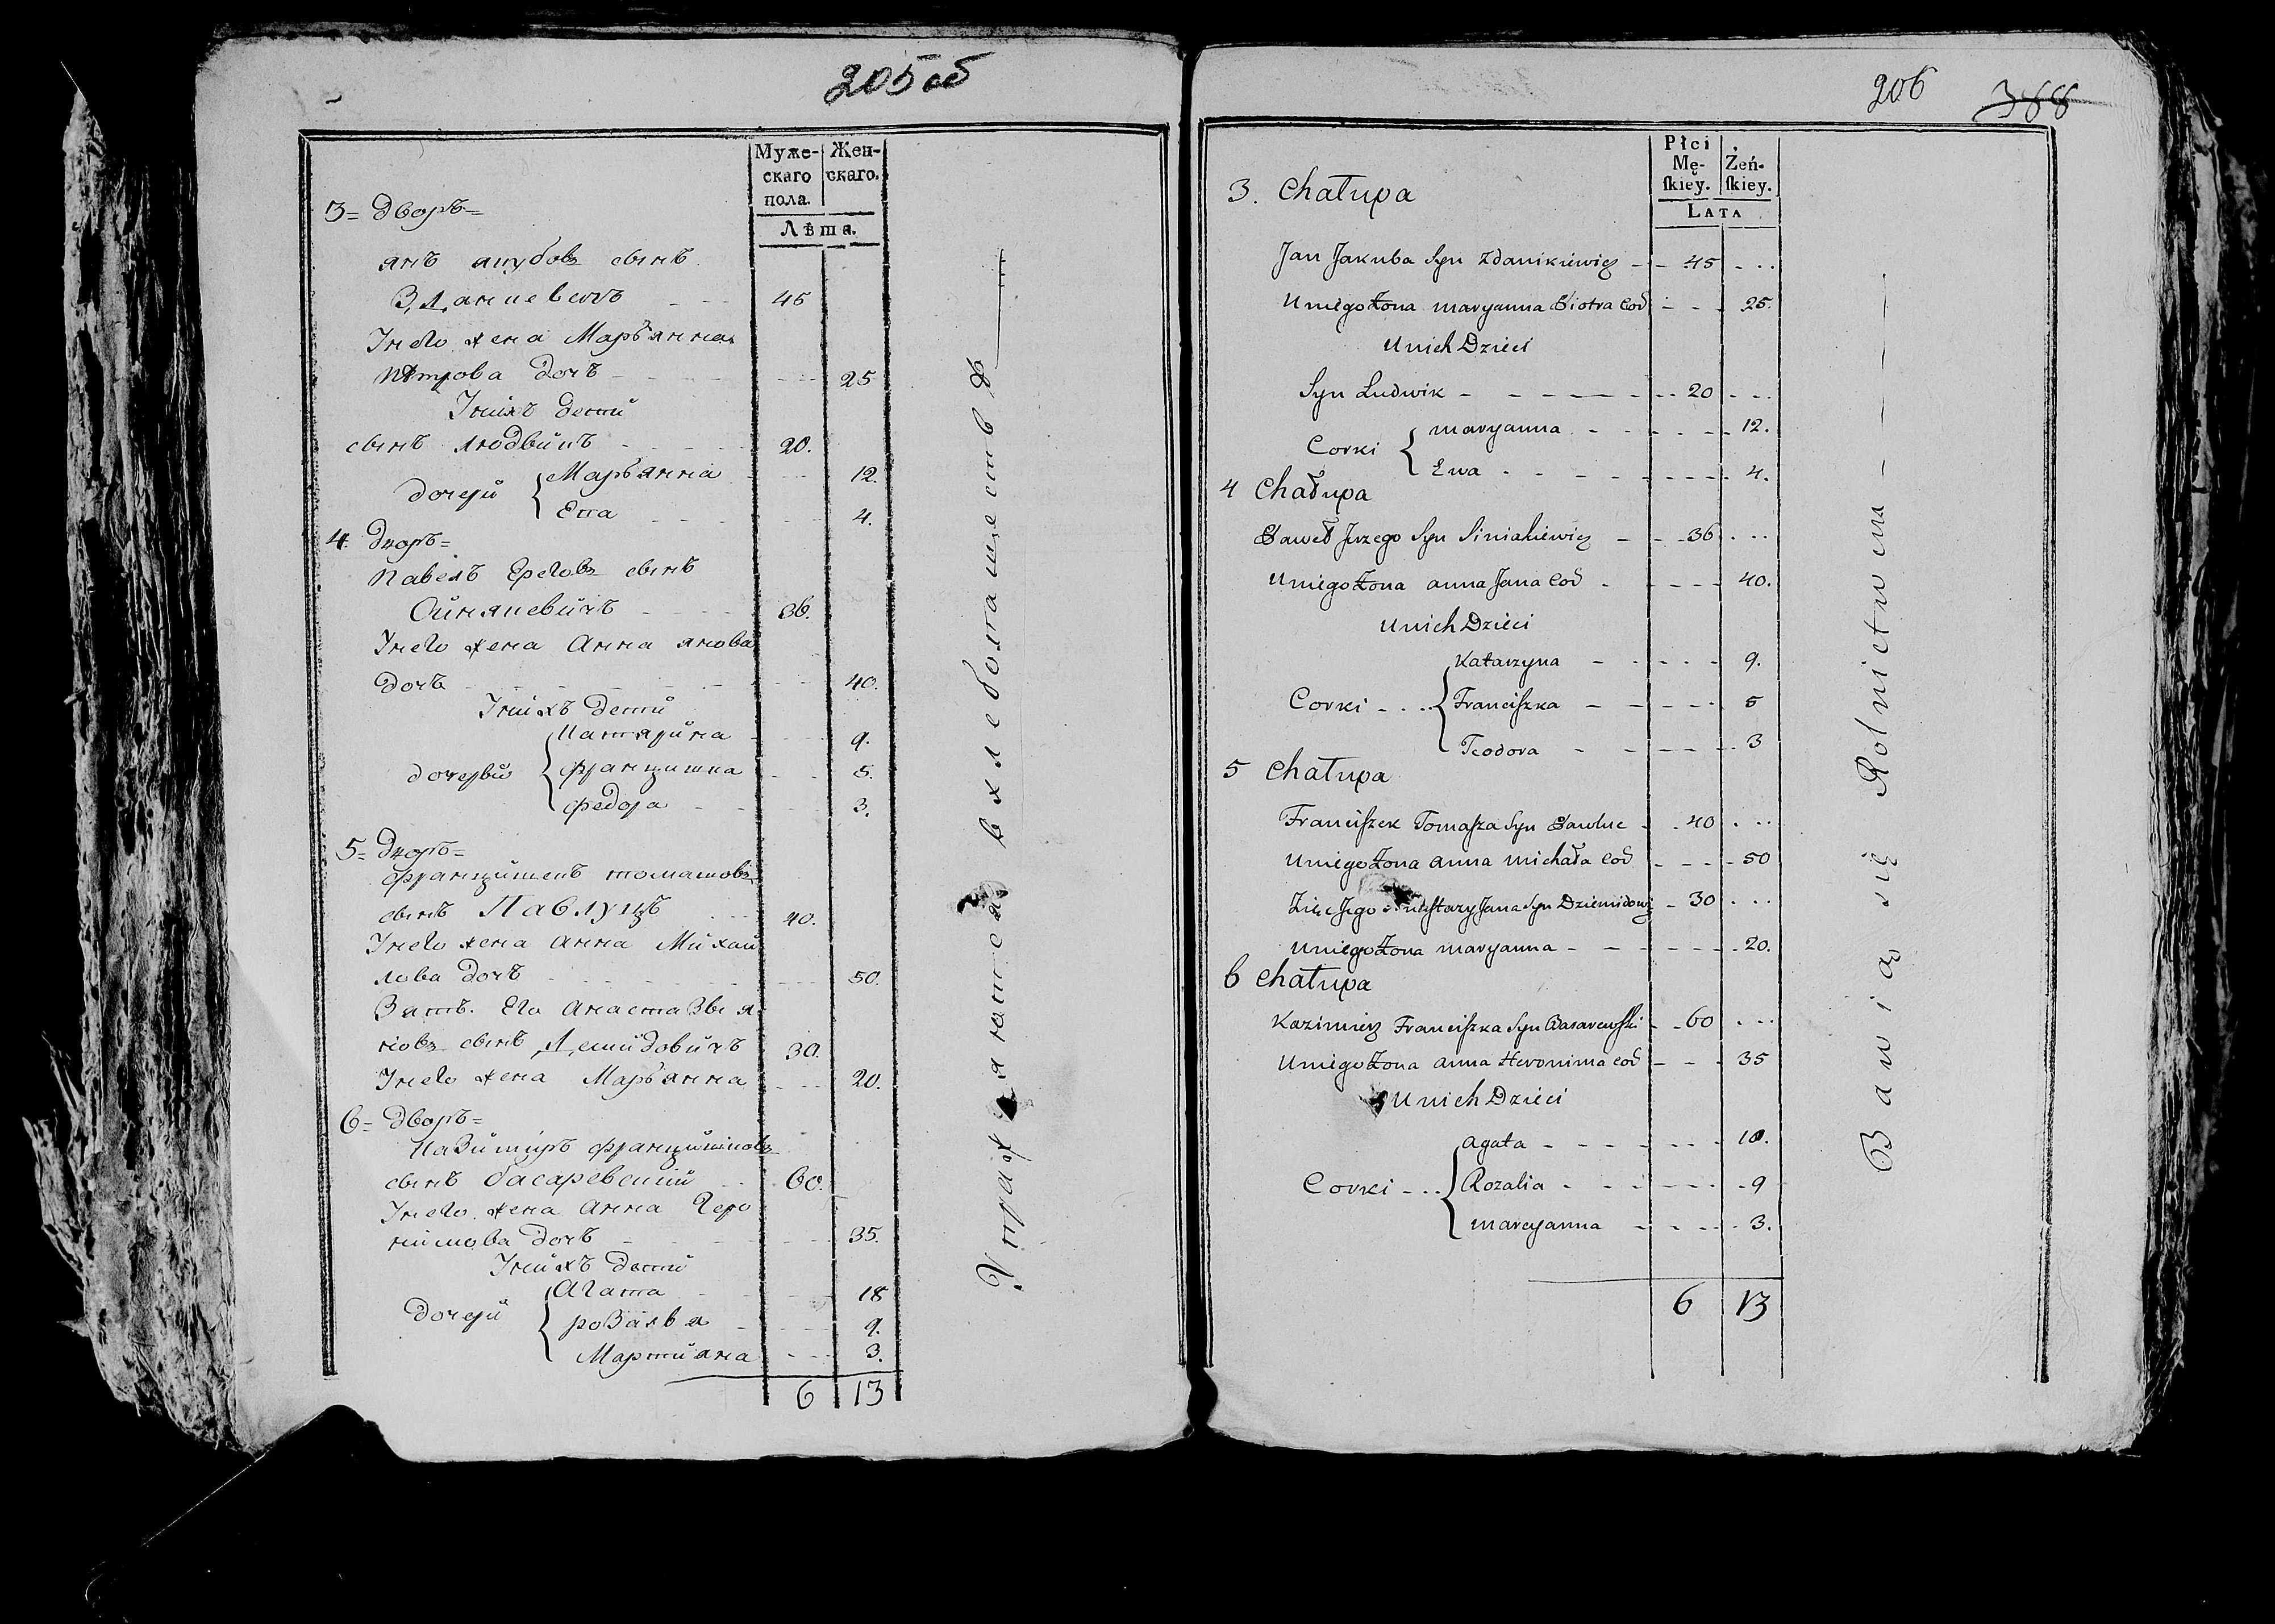 205 об
Муже-
скаго
пола.
Жен-
скаго.
Лѣта.
3= Дворъ=
янъ якубовъ сынъ
Зданкевичъ 45
У него жена Марьянна
Петрова дочь 25
У нихъ дети
сынъ людвикъ 20.
дочери { Марьянна 12.
Ева 4.
4. Дворъ=
Павелъ Еребовъ сынъ
Синякевичъ 36.
У него жена Анна янова
дочь 40.
У нихъ дети
дочери { Катарина 9.
францишка 5.
федора 3.
5= Дворъ=
францишекъ томашовъ
сынъ Павлуцъ 40.
У него жена Анна Михай
лова дочь 50.
Зять Его Анастазы я
новъ сынъ Демидовичъ 30.
У него жена Марьянна 20.
6= Дворъ=
Казимиръ францишковъ
сынъ басаревский 60.
У него жена Анна Геро
нимова дочь 35.
У нихъ дети
дочери { Агата 18
розалья 9.
Мартияна 3.
6 13
Упражняются в хлебопашестве
206 388
Płci
Mę-
ſkiey.
Żeń-
ſkiey.
LATA
3. Chałupa
Jan Jakuba Syn Zdanikiewicz 45
U niego Żona maryanna Piotra Cor 25.
U nich Dzieci
Syn Ludwik 20
Corki { maryanna 12.
Ewa 4.
4 Chałupa
Paweł Jerzego Syn Siniakiewicz 36
U niego Żona anna Jana Cor 40.
U nich Dzieci
Corki { Katarzyna 9.
Franciſzka 5
Teodora 3
5 Chałupa
Franciſzek Tomaſza Syn Pawluc 40
U niego Żona anna michała Cor 50
Zięć Jego Jana Syn Dziemidowicz 30
U niego Żona maryanna 20.
6 Chałupa
Kazimierz Franciſzka Syn Basarewſki 60
U niego Żona anna Heronima Cor 35
U nich Dzieci
Corki { agata 10.
Rozalia 9
marcyanna 3.
6 13
Bawią się Rolnictwem